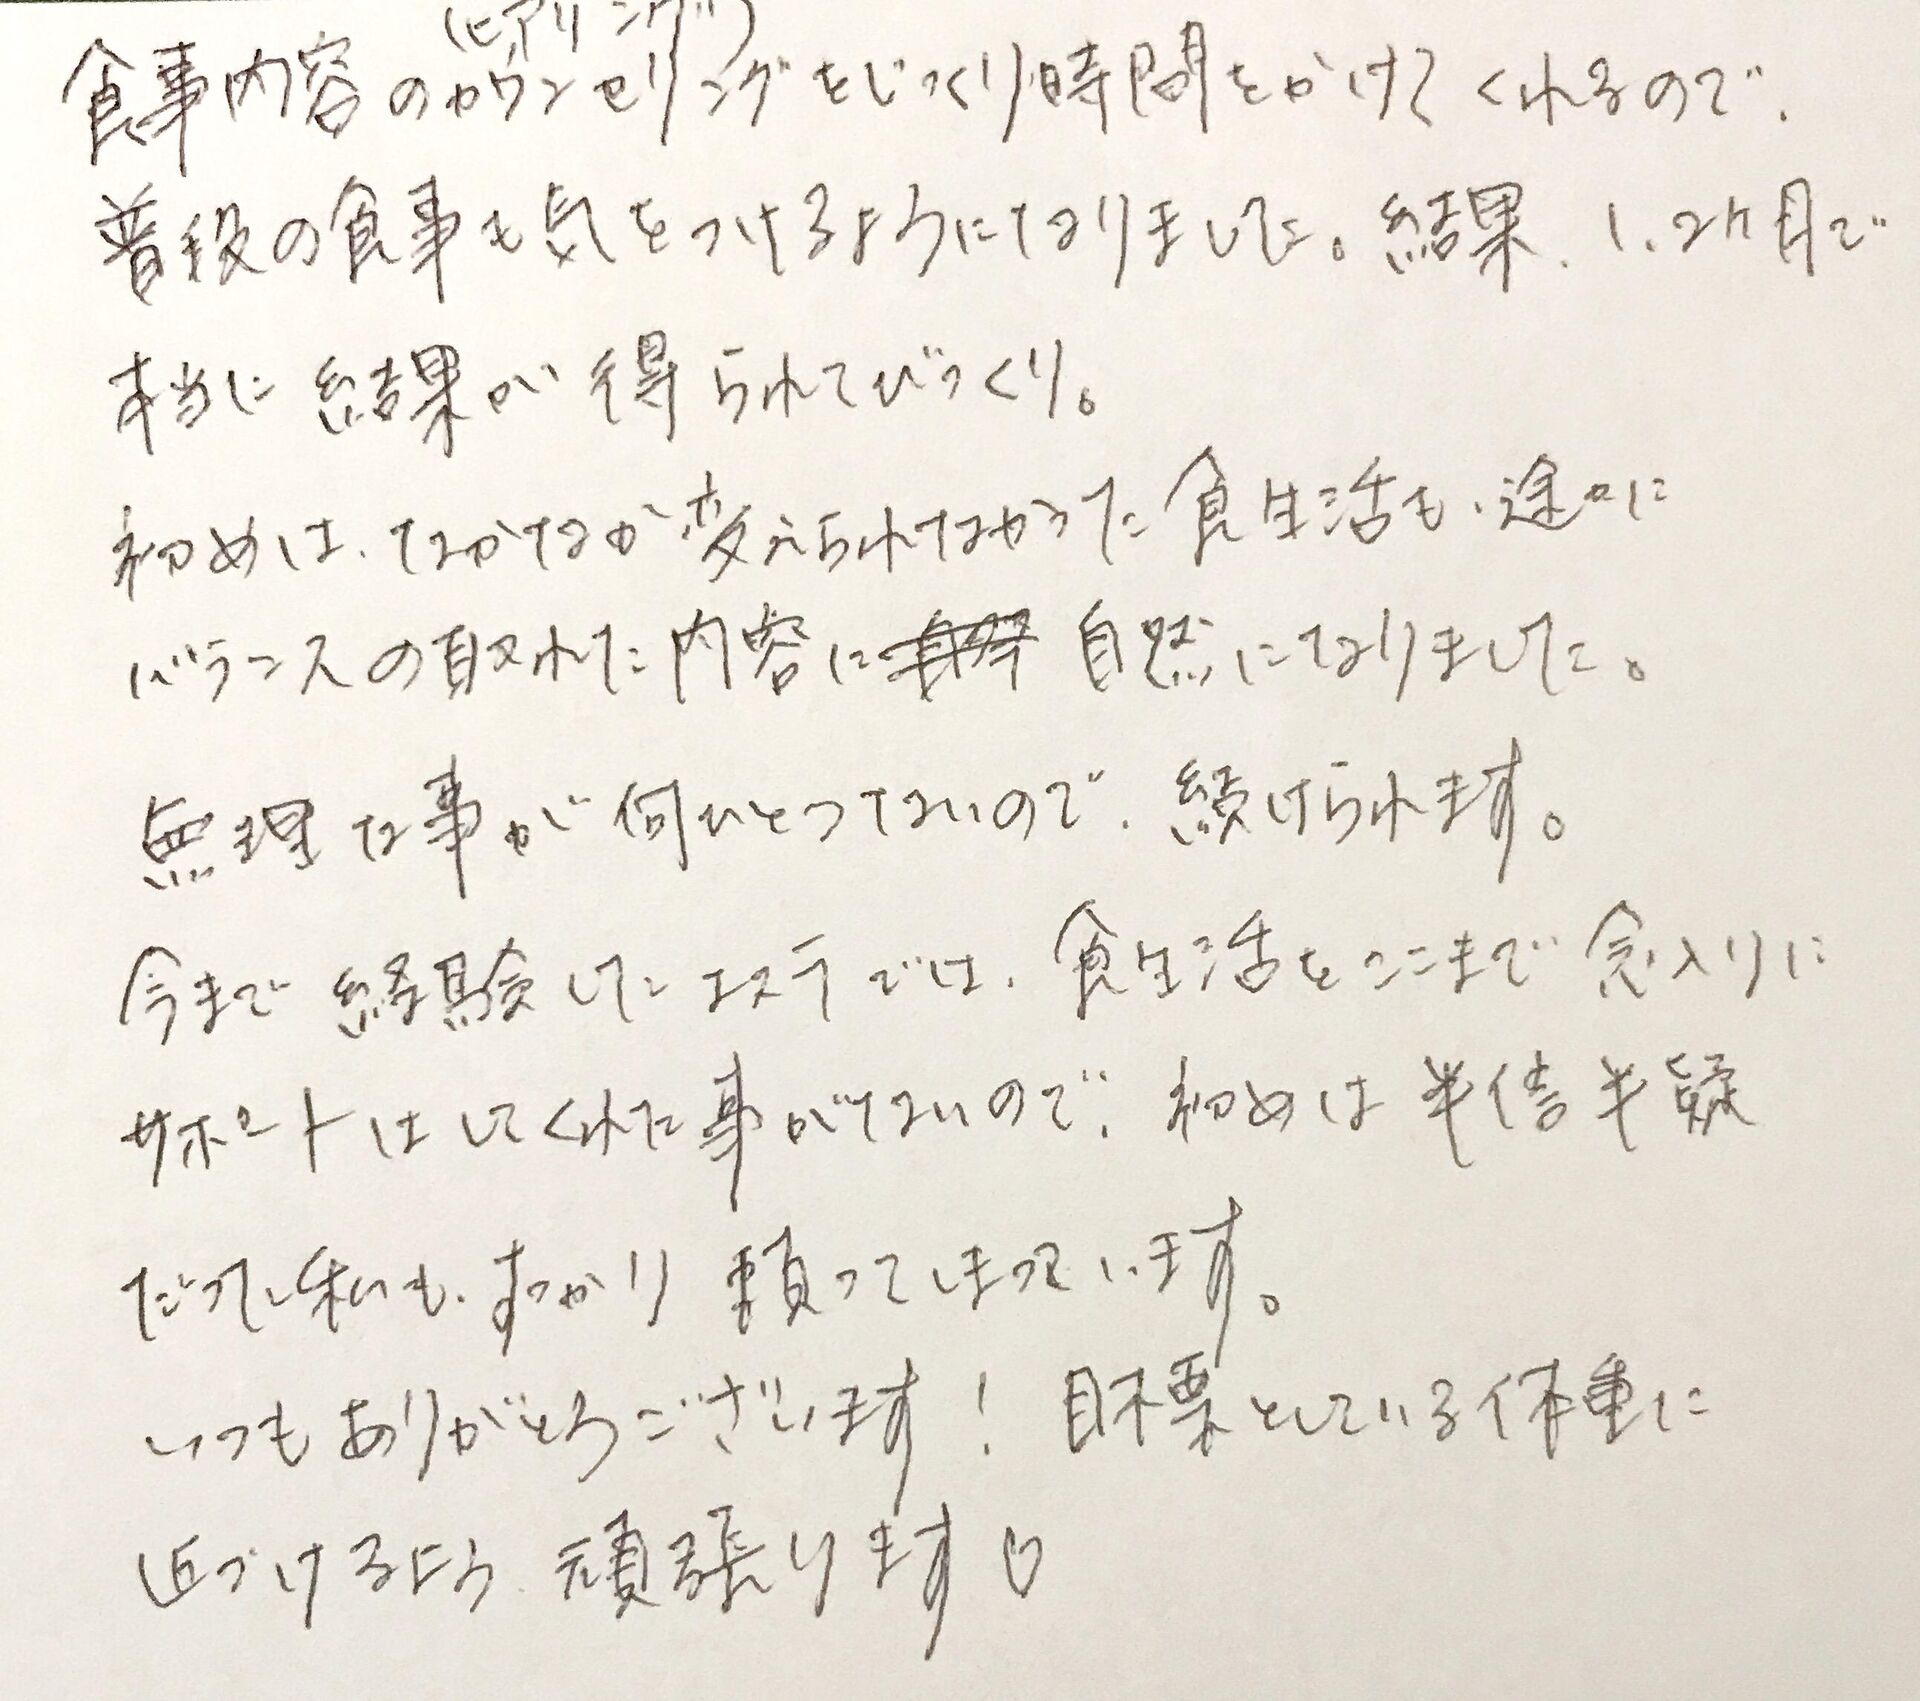 (ヒアリング)
食事内容のカウンセリングをじっくり時間をかけてくれるので、
普段の食事も気をつけるようになりました。結果、1、2ヶ月で
本当に結果が得られてびっくり。
初めは、なかなか変えられなかった食生活も、途中に
バランスの取れた内容に 自然になりました。
無理な事が何ひとつないので、続けられます。
今まで経験したエステでは、食生活をここまで念入りに
サポートはしてくれた事がないので、初めは半信半疑
だった私も、すっかり頼ってしまっています。
いつもありがとうございます！目標としている体重に
近づけるよう、頑張ります♡